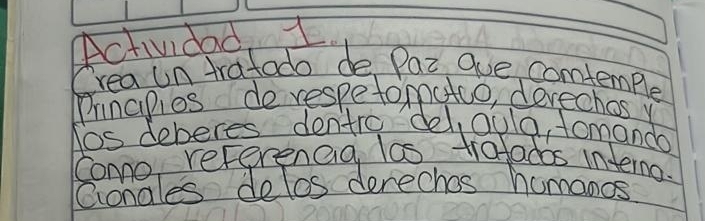 Actividad 1.
Crea un tratado de Paz que comtemple
Principios de respeto mutuo, derechos y
los deberes dentro del aula, tomando
como referencia los tratados interna-
cionales de los derechos humanos.